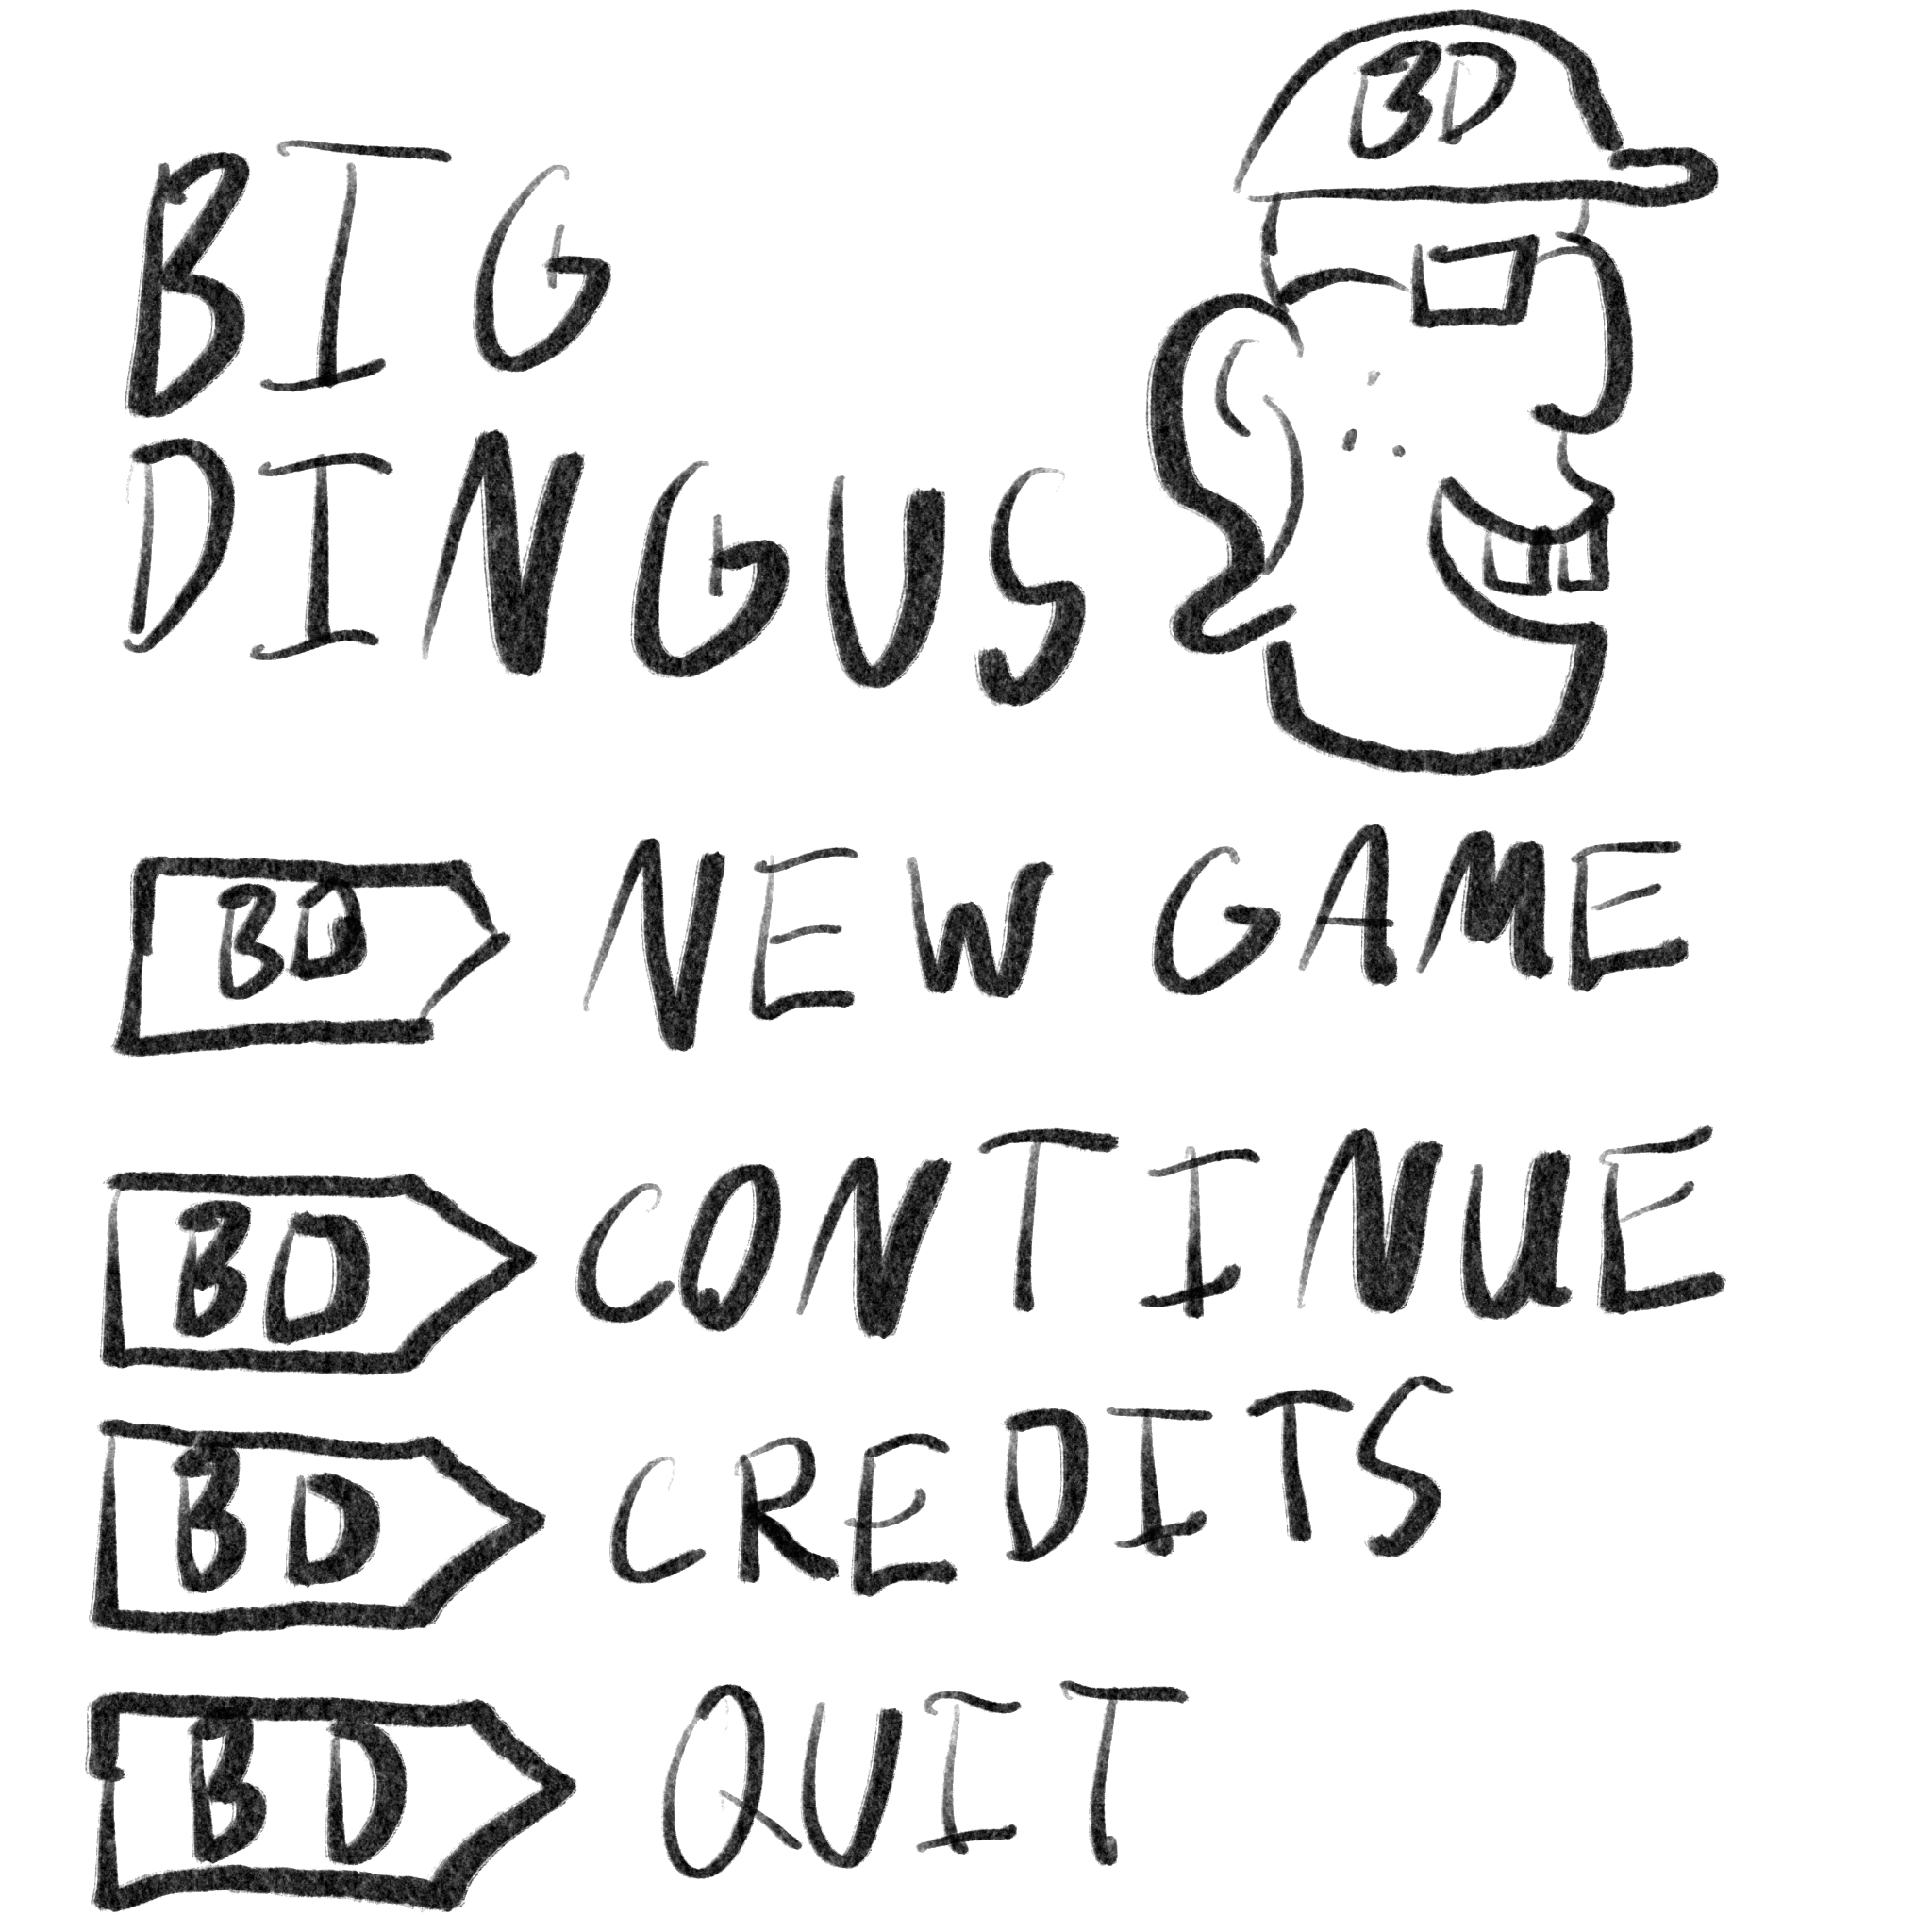 BD
BIG
DINGUS
BD NEW GAME
BD CONTINUE
BD CREDITS
BD QUIT